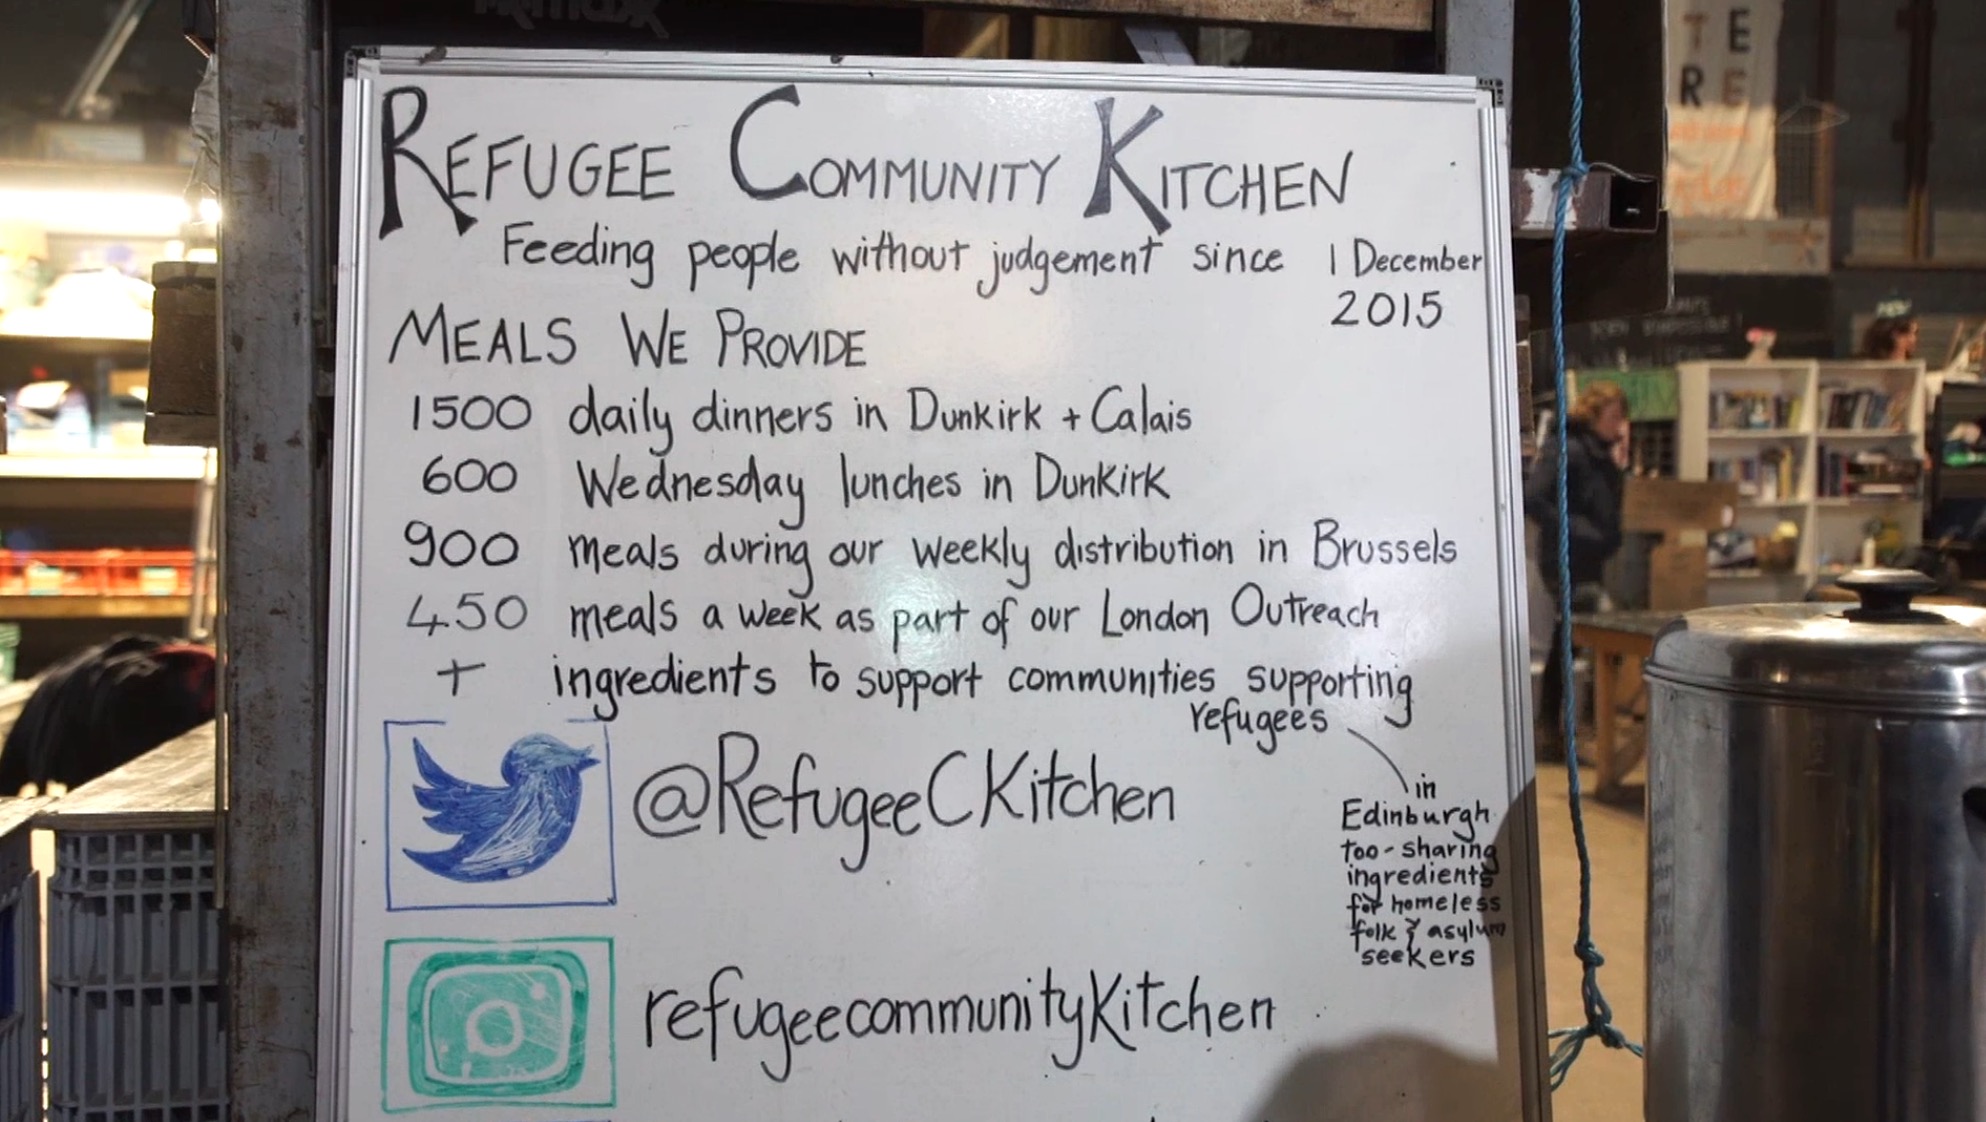 REFUGEE COMMUNITY KITCHEN
Feeding people without judgement since 1 December
2015
MEALS WE PROVIDE
1500 daily dinners in Dunkirk + Calais
600 Wednesday lunches in Dunkirk
900 meals during our weekly distribution in Brussels
450 meals a week as part of our London Outreach
+ ingredients to support communities supporting
refugees
in
Edinburgh
too - sharing
ingredients
for homeless
folk & asylum
seekers
@RefugeeCKitchen
refugeecommunityKitchen
T E
R E